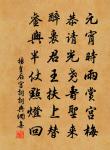 元宵時雨賞宮梅
恭請光堯壽聖來
醉裏君王扶上輦
鑾輿半仗點燈回
楊皇后宮詞